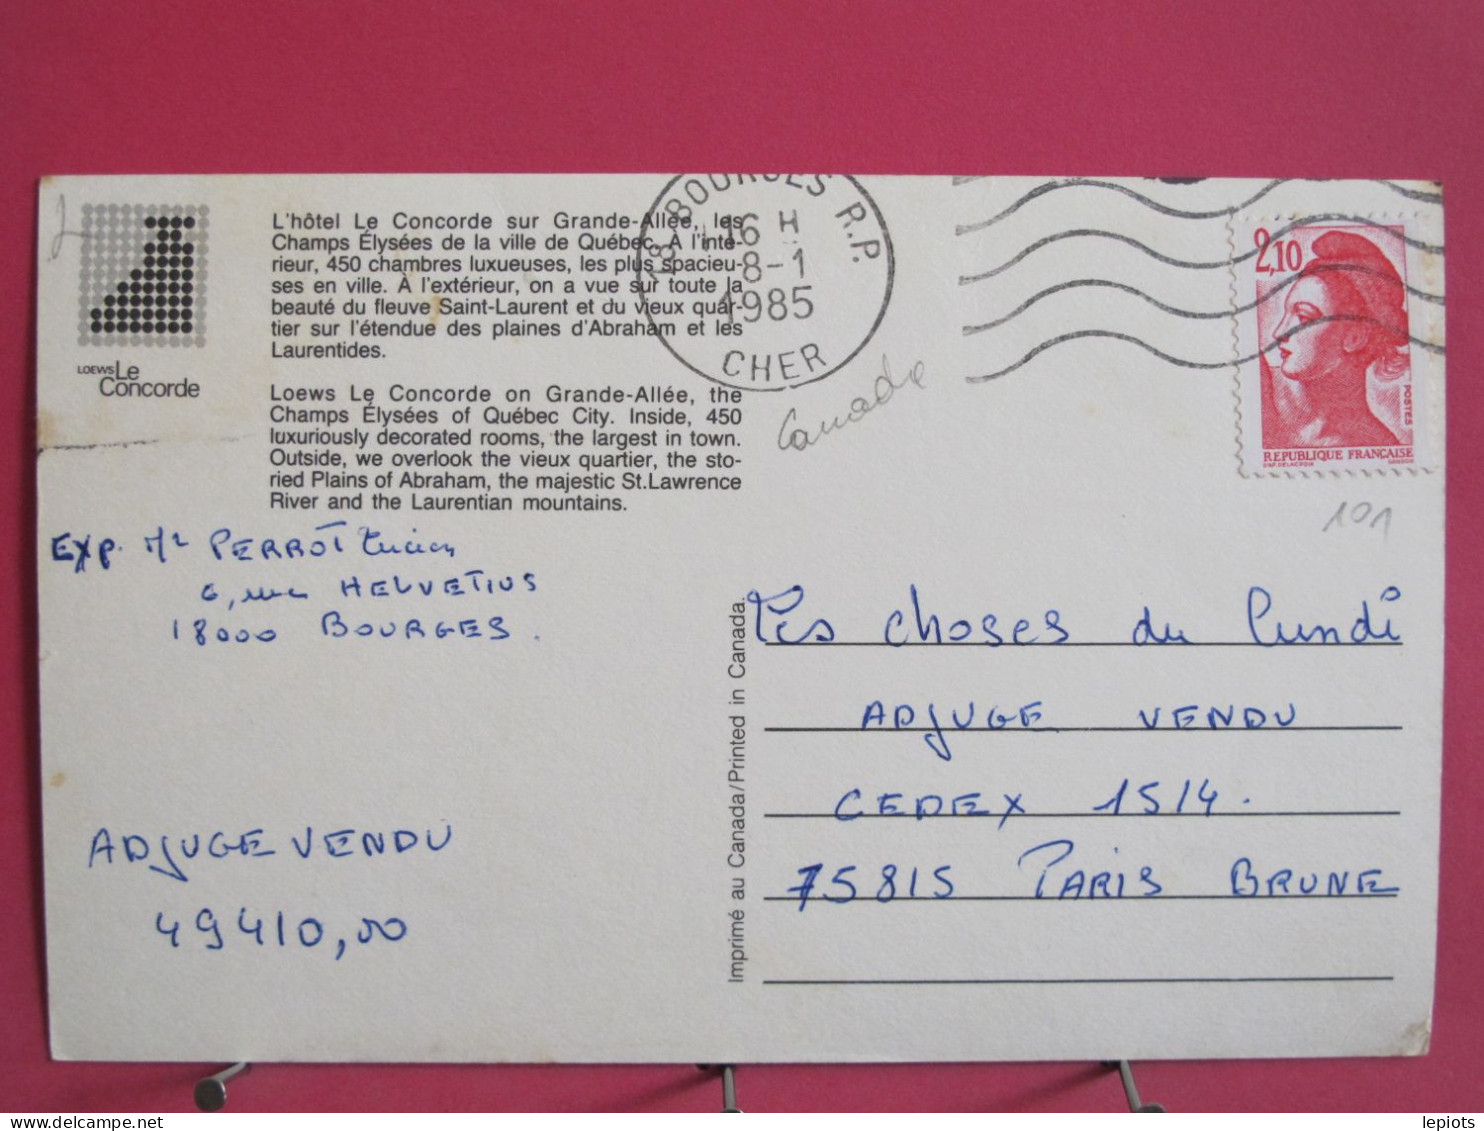 2
LOEWS Le
Concorde
L'hôtel Le Concorde sur Grande-Allée, les
Champs Élysées de la ville de Québec. À l'inté-
rieur, 450 chambres luxueuses, les plus spacieu-
ses en ville. À l'extérieur, on a vue sur toute la
beauté du fleuve Saint-Laurent et du vieux quar-
tier sur l'étendue des plaines d'Abraham et les
Laurentides.
Loews Le Concorde on Grande-Allée, the
Champs Élysées of Québec City. Inside, 450
luxuriously decorated rooms, the largest in town.
Outside, we overlook the vieux quartier, the sto-
ried Plains of Abraham, the majestic St.Lawrence
River and the Laurentian mountains.
18. BOURGES R.P.
16 H
8-1
1985
CHER
Canada
2,10
POSTES
REPUBLIQUE FRANÇAISE
D'AP. DELACROIX GANDON
101
Exp. Mr PERROT Lucien
6, rue HELVETIUS
18000 BOURGES.
ADJUGE VENDU
49410,00
Imprimé au Canada/Printed in Canada.
Les choses du lundi
ADJUGE VENDU
CEDEX 1514.
75815 PARIS BRUNE
lepiots